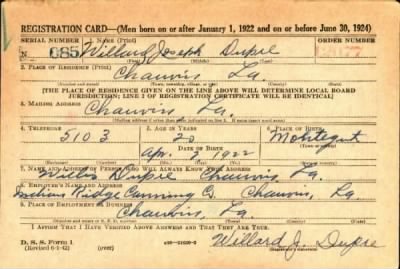 REGISTRATION CARD—(Men born on or after January 1, 1922 and on or before June 30, 1924)
SERIAL NUMBER 1. NAME (Print) ORDER NUMBER
N 685 Willard Joseph Dupre
(First) (Middle) (Last)
2. PLACE OF RESIDENCE (Print)
Chauvin La.
[THE PLACE OF RESIDENCE GIVEN ON THE LINE ABOVE WILL DETERMINE LOCAL BOARD
JURISDICTION; LINE 2 OF REGISTRATION CERTIFICATE WILL BE IDENTICAL]
3. MAILING ADDRESS
Chauvin La.
4. TELEPHONE 5. AGE IN YEARS 6. PLACE OF BIRTH
5103 20 Montegut
DATE OF BIRTH
Apr. 7 1922
7. NAME AND ADDRESS OF PERSON WHO WILL ALWAYS KNOW YOUR ADDRESS
Willis Dupre Chauvin, La.
8. EMPLOYER'S NAME AND ADDRESS
Indian Ridge Canning Co. Chauvin, La.
9. PLACE OF EMPLOYMENT OR BUSINESS
Chauvin, La.
I AFFIRM THAT I HAVE VERIFIED ABOVE ANSWERS AND THAT THEY ARE TRUE.
D. S. S. Form 1
(Revised 6-9-42) (over) Willard J. Dupre